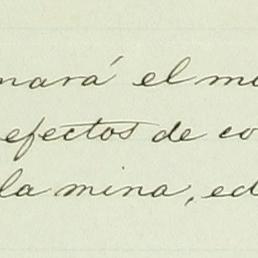 mará el m
efectos de co
la mina, ed